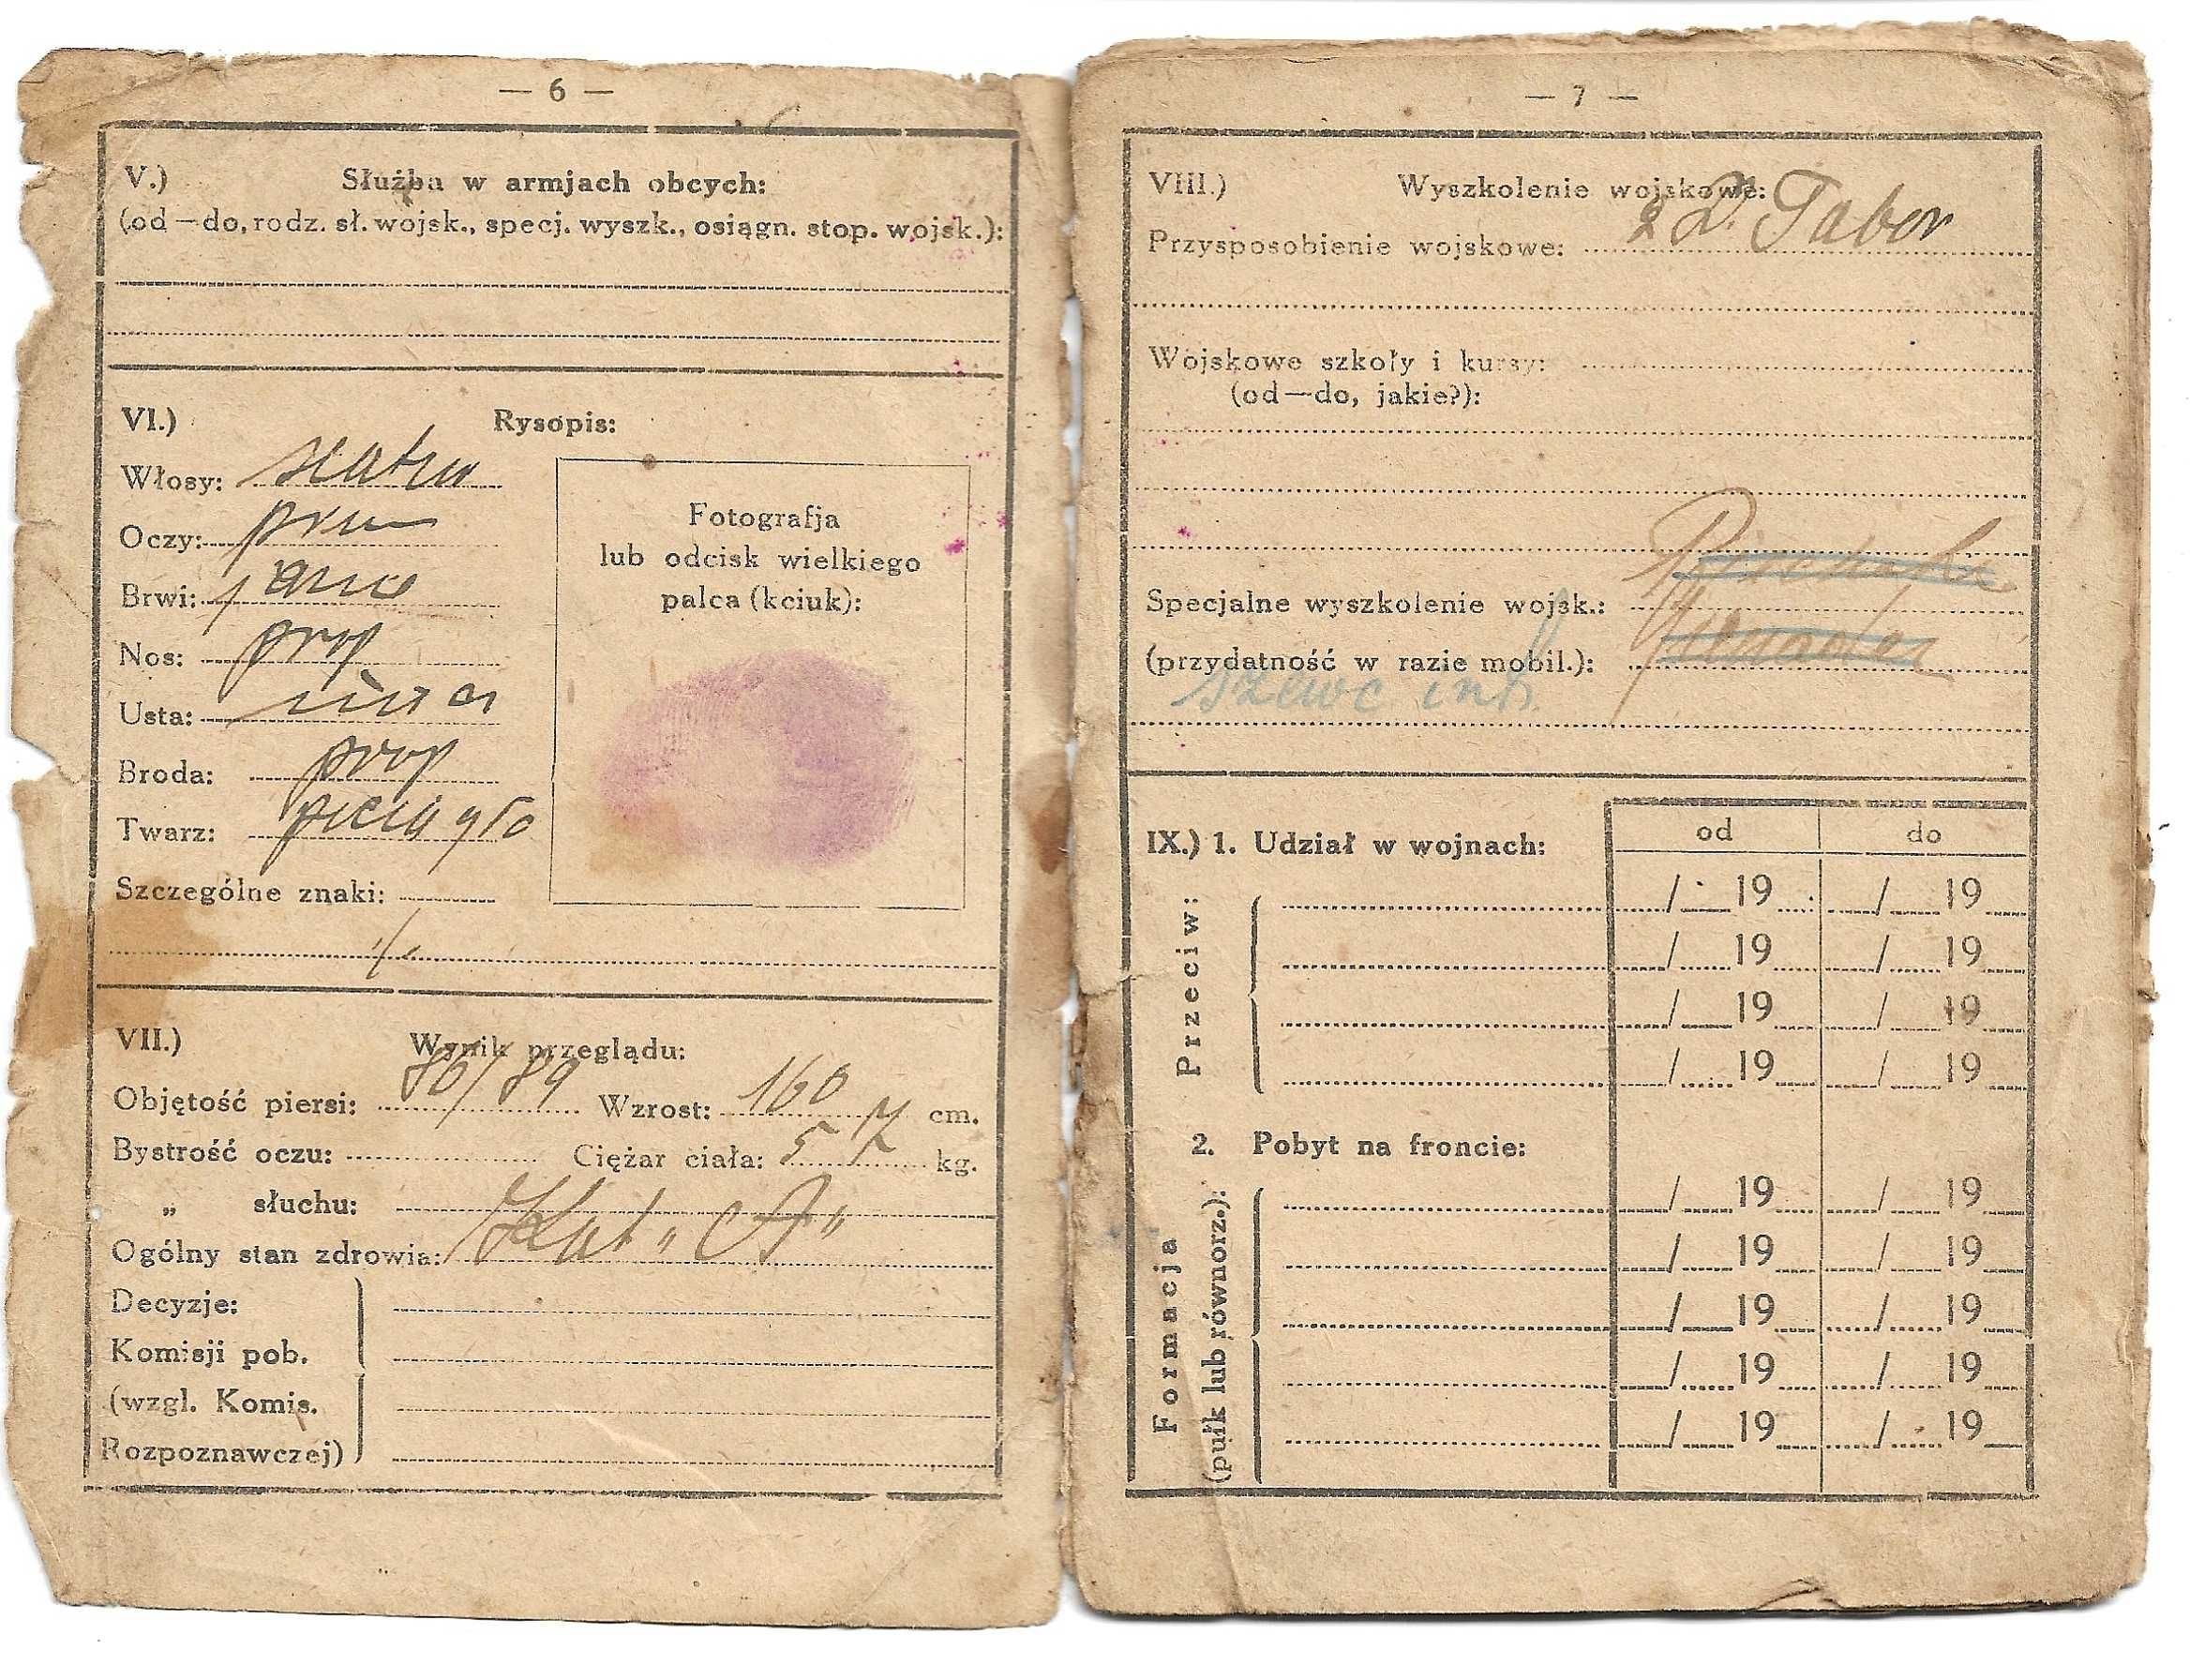 — 6 —
V.) Służba w armjach obcych:
(od—do, rodz. sł. wojsk., specj. wyszk., osiągn. stop. wojsk.):
VI.) Rysopis:
Włosy:
Oczy:
Brwi:
Nos: prop
Usta:
Broda: prop
Twarz:
Szczególne znaki:
Fotografja
lub odcisk wielkiego
palca (kciuk):
VII.) Wynik przeglądu:
Objętość piersi: 86/89 Wzrost: 160 cm.
Bystrość oczu: Ciężar ciała: kg.
„ słuchu:
Ogólny stan zdrowia: Kat „A"
Decyzje:
Komisji pob.
(wzgl. Komis.
Rozpoznawczej)
— 7 —
VIII.) Wyszkolenie wojskowe:
Przysposobienie wojskowe: Tabor
Wojskowe szkoły i kursy:
(od—do, jakie?):
Specjalne wyszkolenie wojsk.:
(przydatność w razie mobil.):
szewc
IX.) 1. Udział w wojnach: od do
Przeciw:
/ 19 / 19
/ 19 / 19
/ 19 / 19
/ 19 / 19
2. Pobyt na froncie:
Formacja
(pułk lub równorz.):
/ 19 / 19
/ 19 / 19
/ 19 / 19
/ 19 / 19
/ 19 / 19